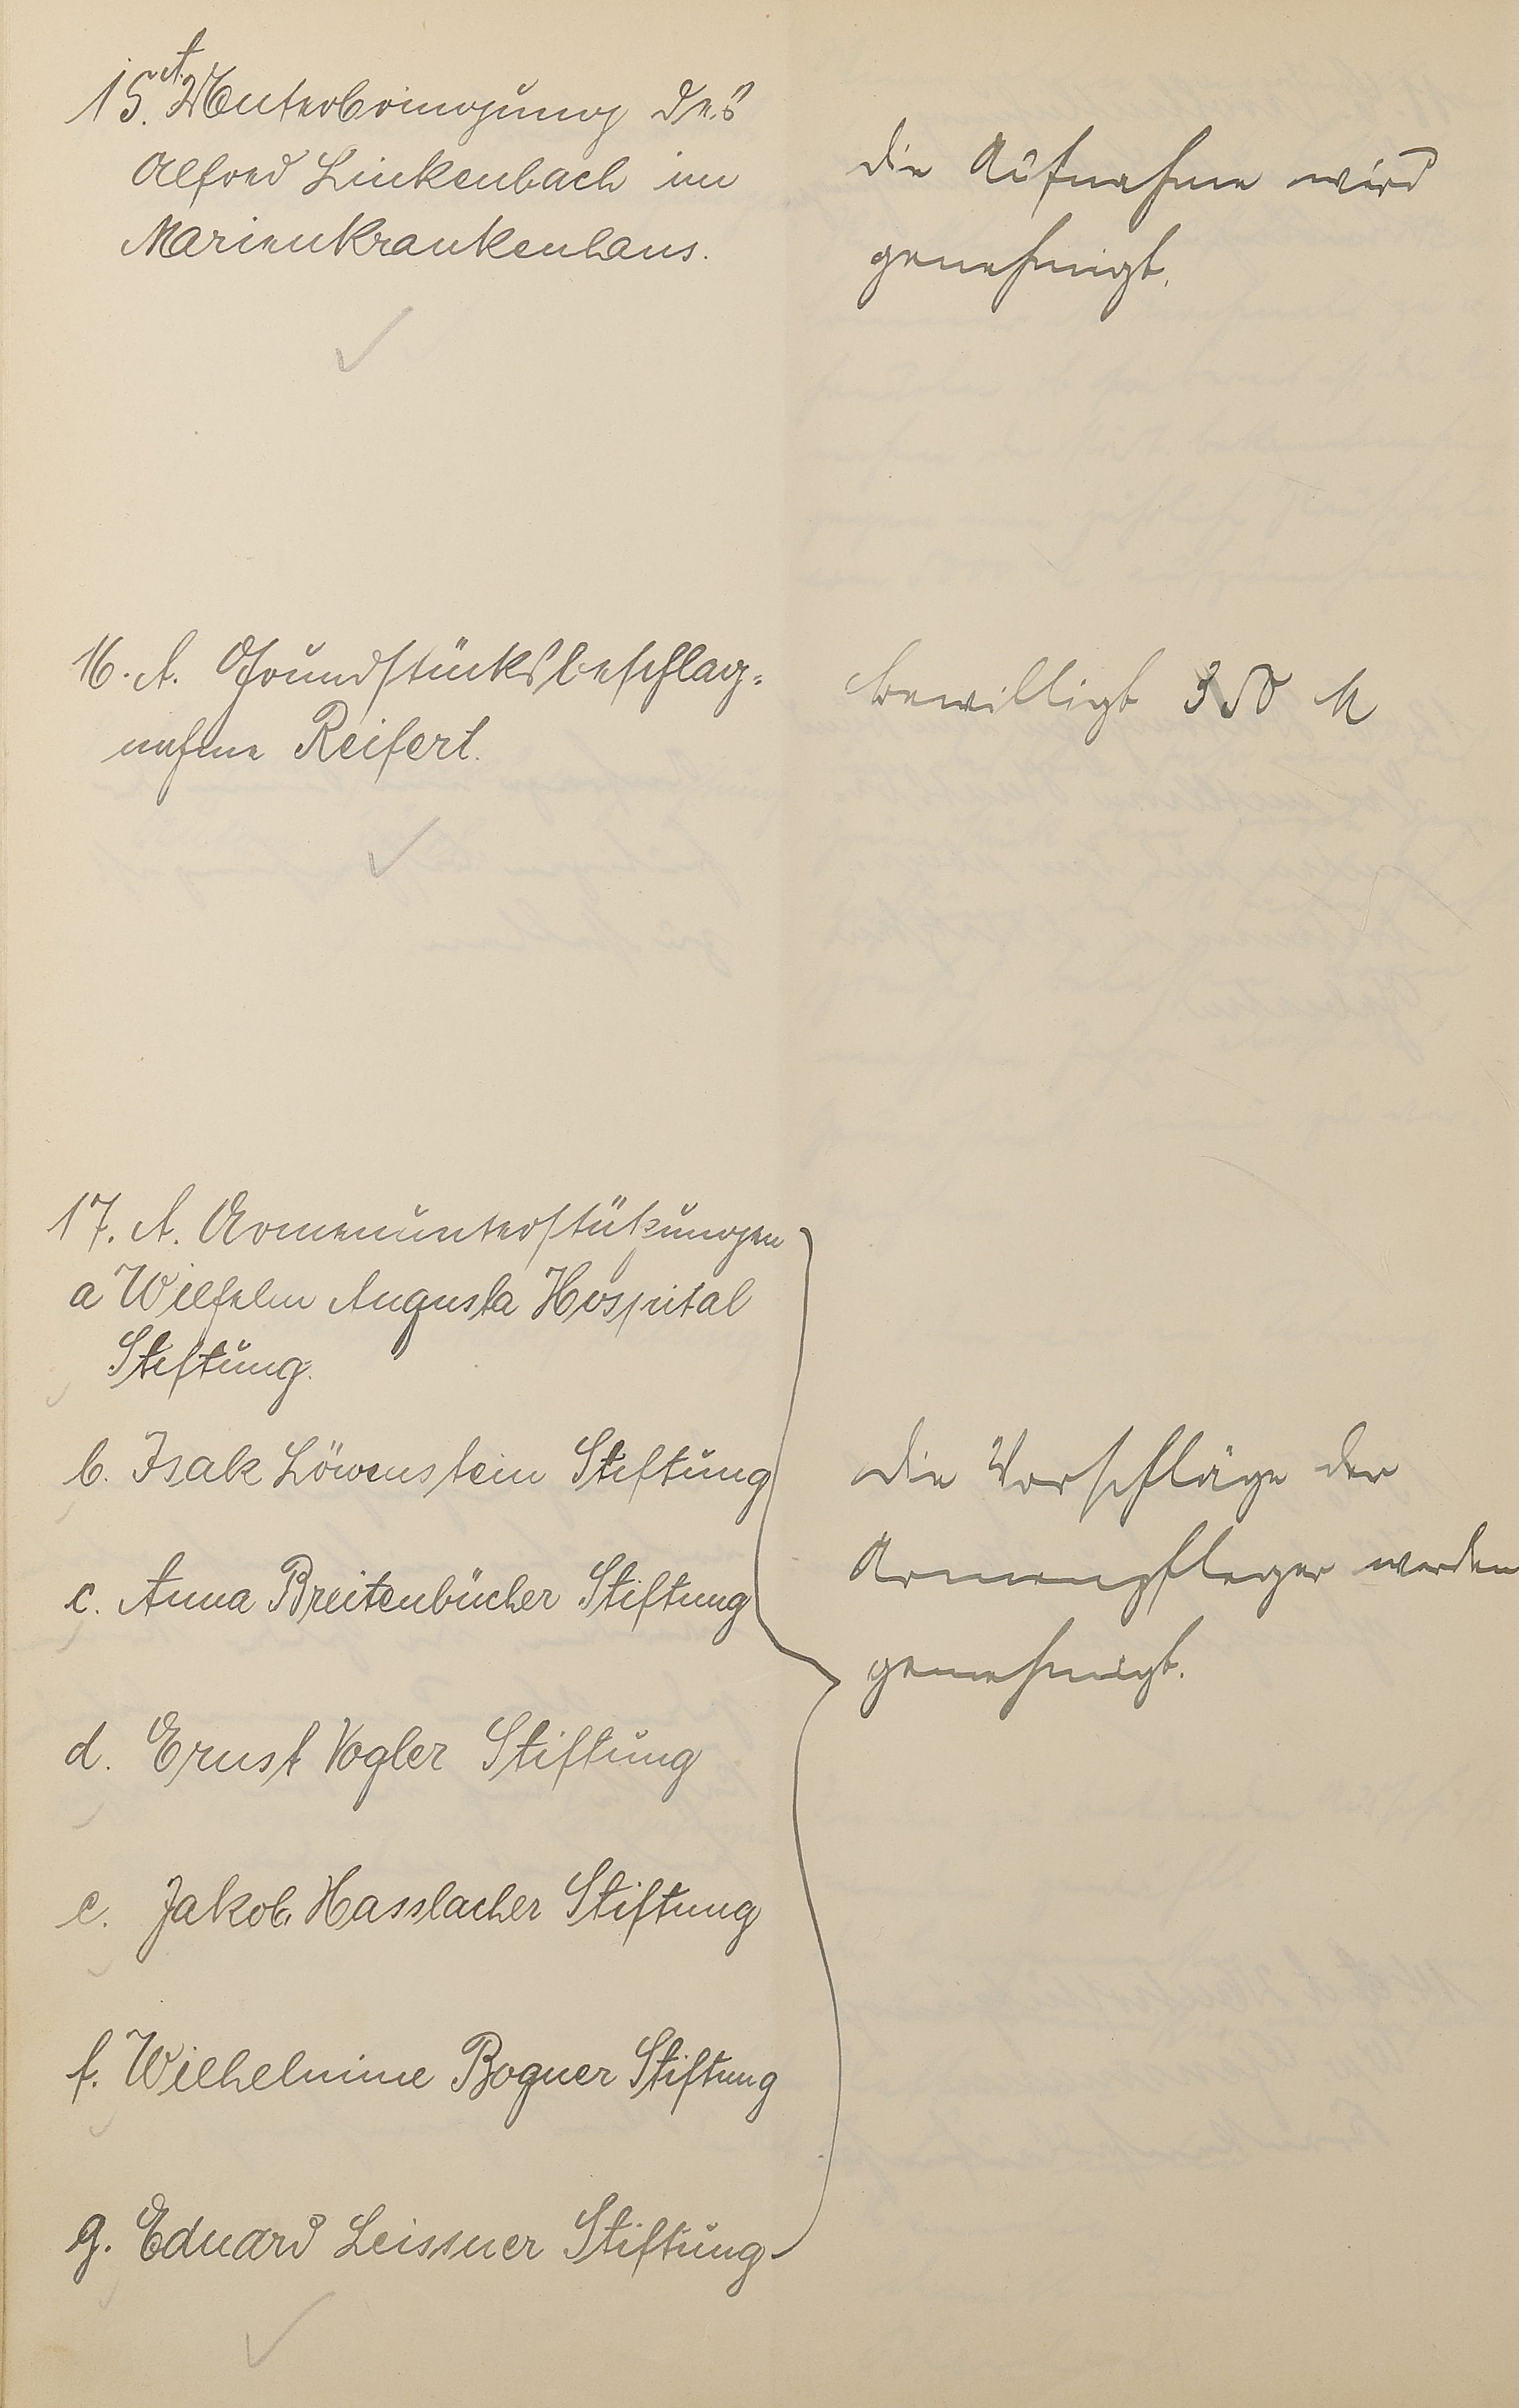 15. A. Unterbringung des
Alfred Linkenbach im
Marienkrankenhaus.
die Aufnahme wird
genehmigt.
16. A. Grundstücksbeschlag-
nahme Reifert.
bewilligt 350 M
17. A. Armenunterstützungen
a Wilhelm Augusta Hospital
Stiftung.
b. Isak Löwenstein Stiftung
c. Anna Breitenbücher Stiftung
d. Ernst Vogler Stiftung
e. Jakob Hasslacher Stiftung
f. Wilhelmine Bogner Stiftung
g. Eduard Leissner Stiftung
die Vorschläge der
Armenpfleger werden
genehmigt.